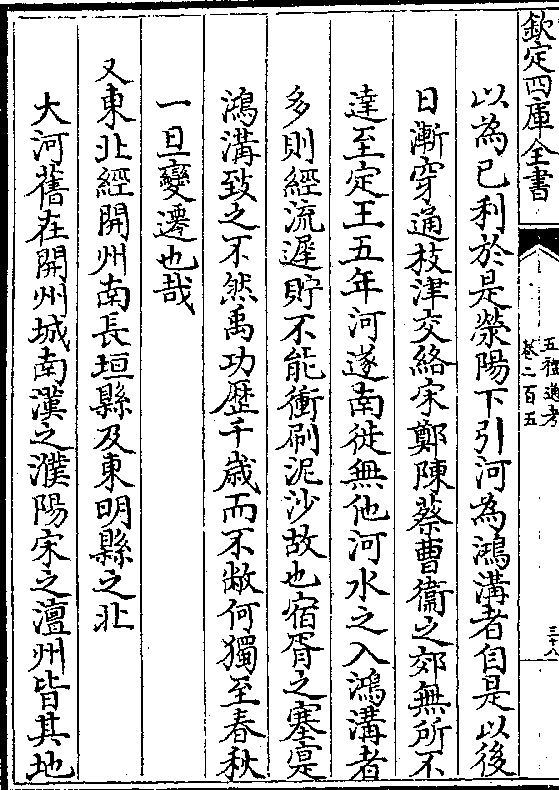 欽定四庫全書
五禮通考
卷二百五
三十八
以為已利於是滎陽下引河為鴻溝者自是以後
日漸穿通技津交絡宋鄭陳蔡曹衞之郊無所不
達至定王五年河遂南徙無他河水之入鴻溝者
多則經流遲貯不能衝刷泥沙故也宿胥之塞寔
鴻溝致之不然禹功歴千歳而不敝何獨至春秋
一旦變遷也哉
又東北經開州南長垣縣及東明縣之北
大河舊在開州城南漢之濮陽宋之澶州皆其地